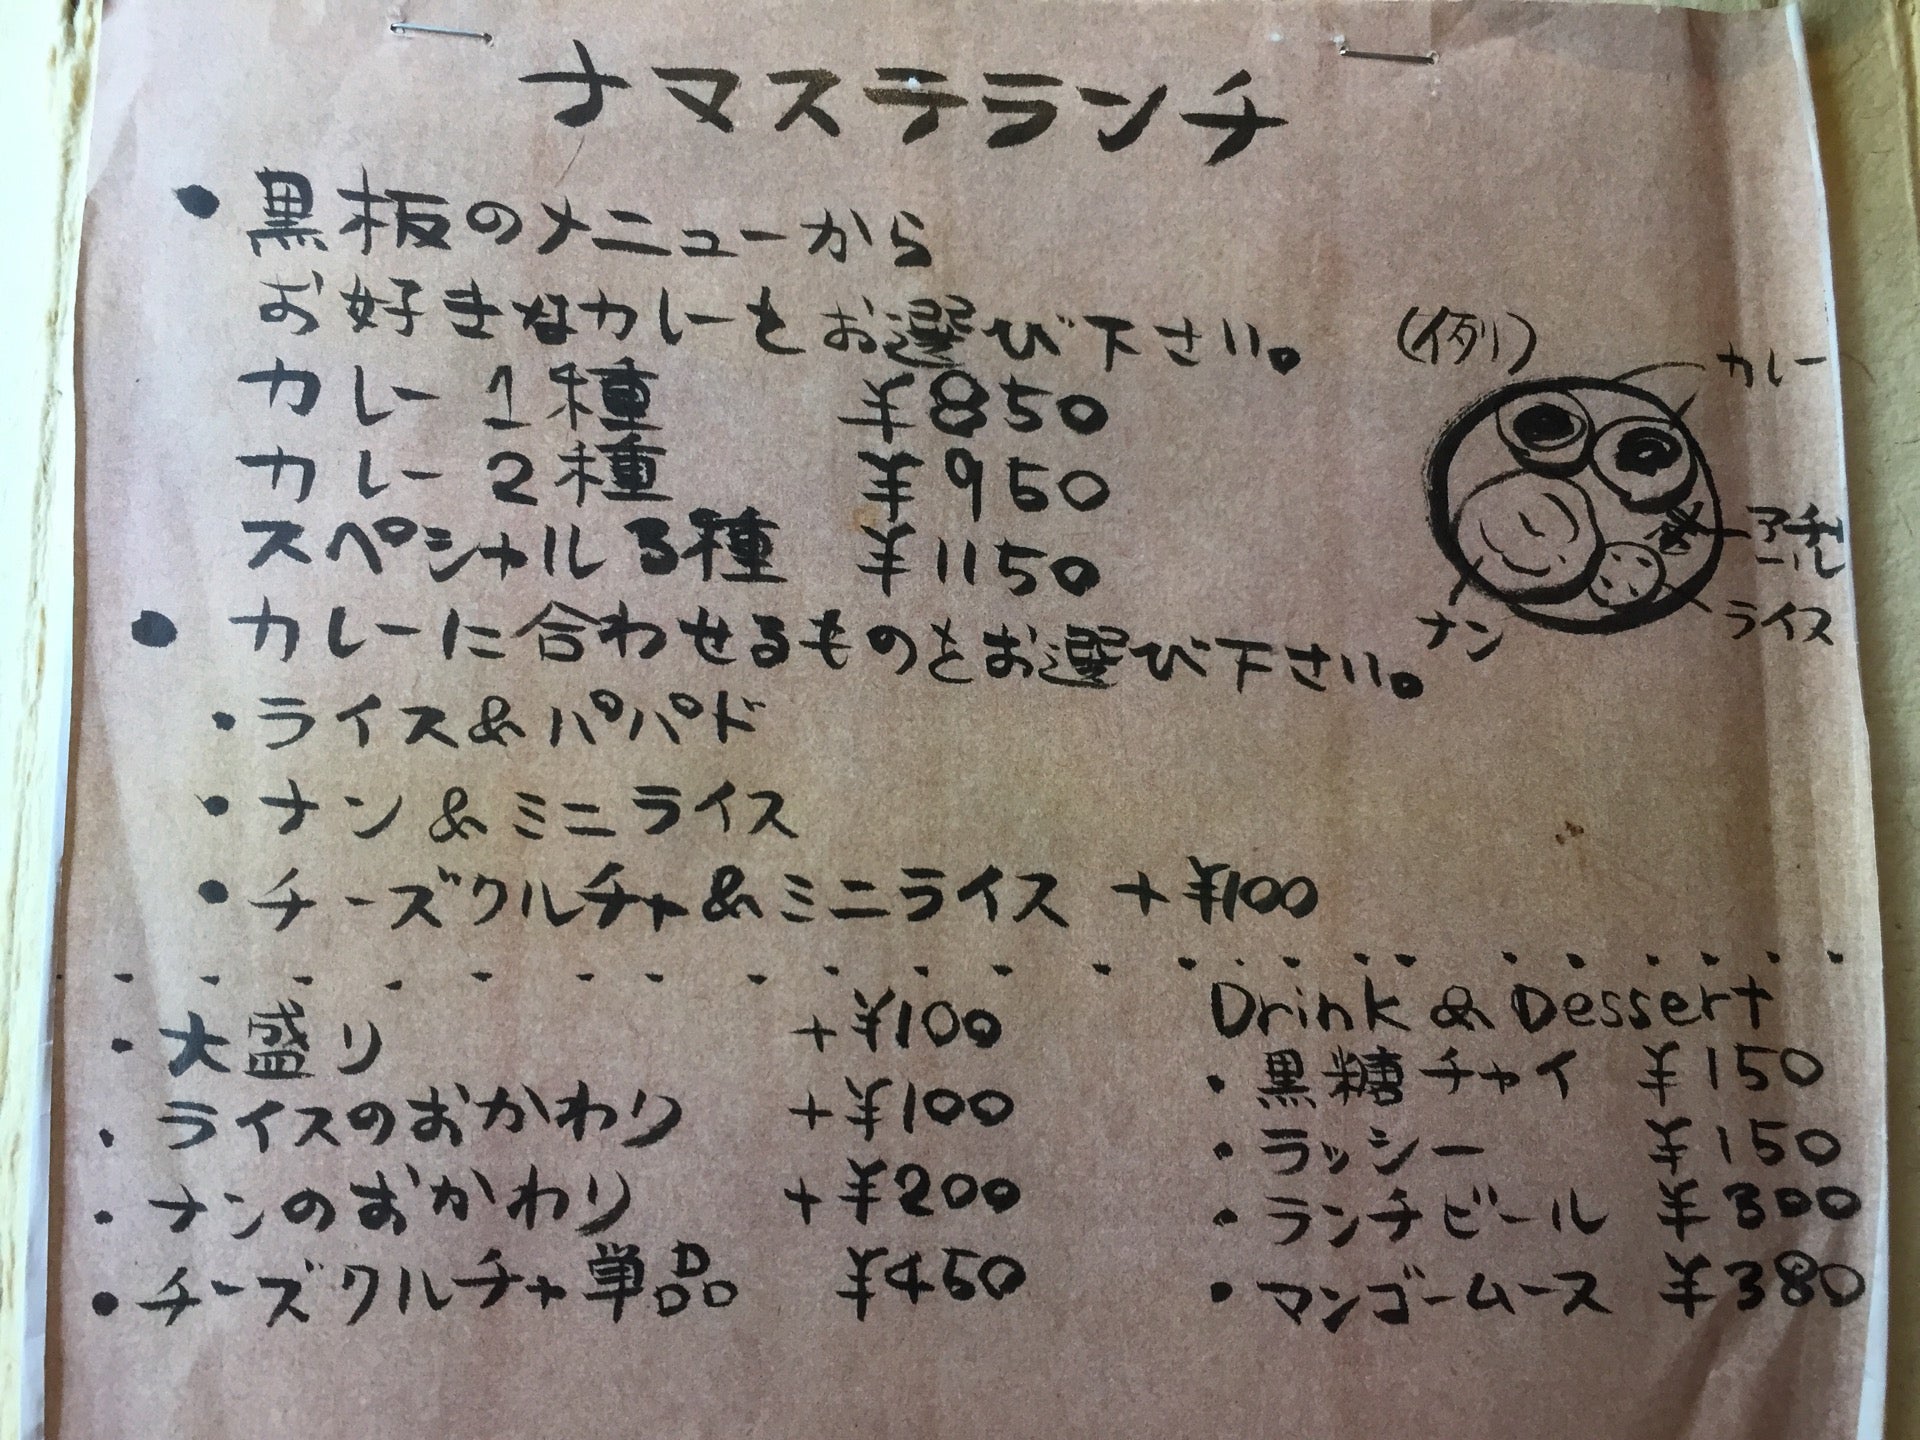 ナマステランチ
● 黒板のメニューから
お好きなカレーをお選び下さい。
カレー 1種 ¥850
カレー 2種 ¥950
スペシャル 3種 ¥1150
(例)
カレー
アチャール
ライス
ナン
● カレーに合わせるものをお選び下さい。
・ライス&パパド
・ナン&ミニライス
・チーズクルチャ&ミニライス +¥100
・大盛り +¥100
・ライスのおかわり +¥100
・ナンのおかわり +¥200
・チーズクルチャ単品 ¥450
Drink & Dessert
・黒糖チャイ ¥150
・ラッシー ¥150
・ランチビール ¥300
・マンゴームース ¥380